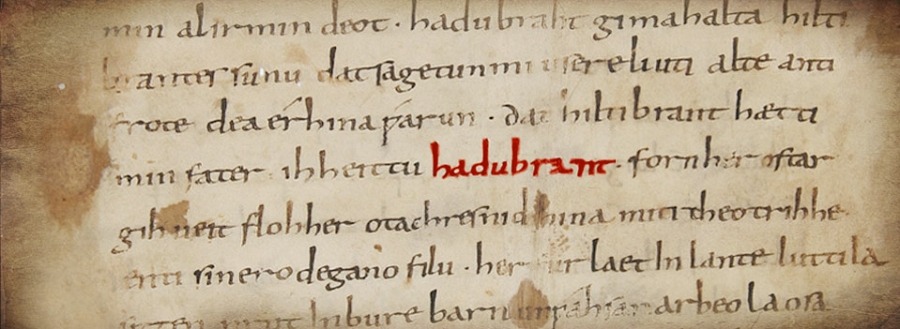 min al irmin deot · hadubraht gimahalta hilti
brantes sunu dat sagetun mi usere liuti alte anti
frote dea érhina ƿarun · dat hiltibrant hætti
min fater ih heittu hadubrant · forn her ostar
gihueit floh her otachres nid hina miti theotrihhe
enti sinero degano filu · her furlaet In lante luttila
sitten prut In bure barn unƿahsan arbeo laosa